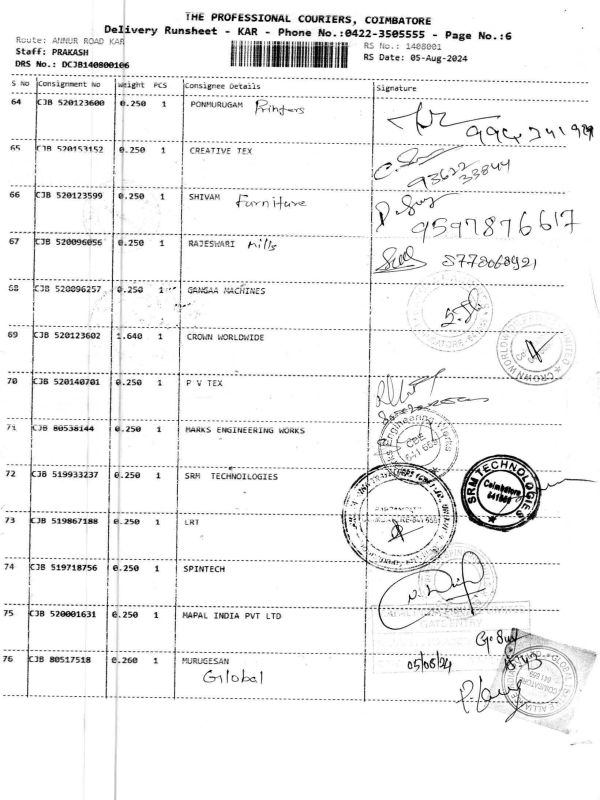 THE PROFESSIONAL COURIERS, COIMBATORE
Delivery Runsheet - KAR - Phone No.:0422-3505555 - Page No.:6
Route: ANNUR ROAD KAR
RS No.: 1408001
Staff: PRAKASH
RS Date: 05-Aug-2024
DRS No.: DCJB140800106
S No Consignment No Weight PCS Consignee Details Signature
64 CJB 520123600 0.250 1 PONMURUGAM Printers
65 CJB 520153152 0.250 1 CREATIVE TEX
93622 33844
66 CJB 520123599 0.250 1 SHIVAM Furniture
9597876617
67 CJB 520096056 0.250 1 RAJESWARI Mills
8778068921
68 CJB 520096257 0.250 1 GANGAA MACHINES
69 CJB 520123602 1.640 1 CROWN WORLDWIDE
CROWN WORLDWIDE
70 CJB 520140701 0.250 1 P V TEX
71 CJB 80538144 0.250 1 MARKS ENGINEERING WORKS
Engineering Works
CBE
641 659
72 CJB 519933237 0.250 1 SRM TECHNOILOGIES
SRM TECHNOLOGIES
Coimbatore
73 CJB 519867188 0.250 1 LRT
74 CJB 519718756 0.250 1 SPINTECH
75 CJB 520001631 0.250 1 MAPAL INDIA PVT LTD
GATE ENTRY
76 CJB 80517518 0.260 1 MURUGESAN
05/08/24
Global